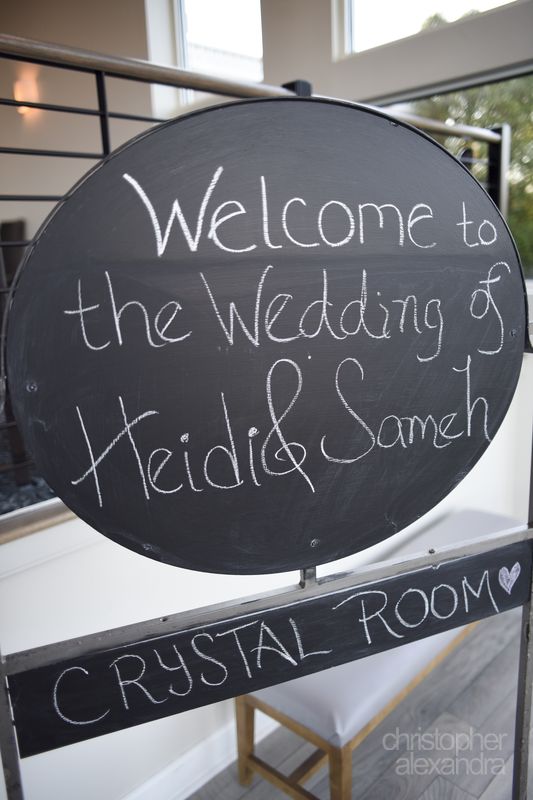 Welcome to
the Wedding of
Heidi & Sameh
CRYSTAL ROOM
christopher
alexandra